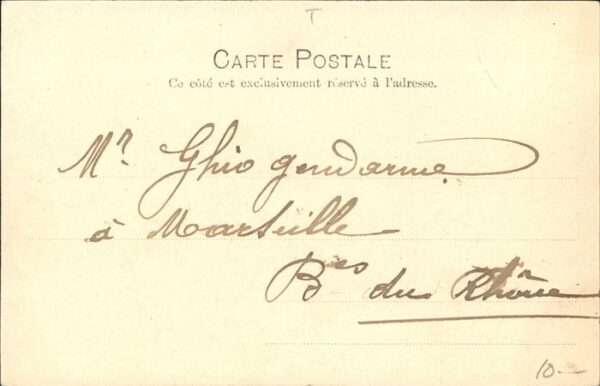 T
CARTE POSTALE
Ce côté est exclusivement réservé à l'adresse.
Mr. Ghio gendarme
à Marseille
Bes du Rhône
10.-